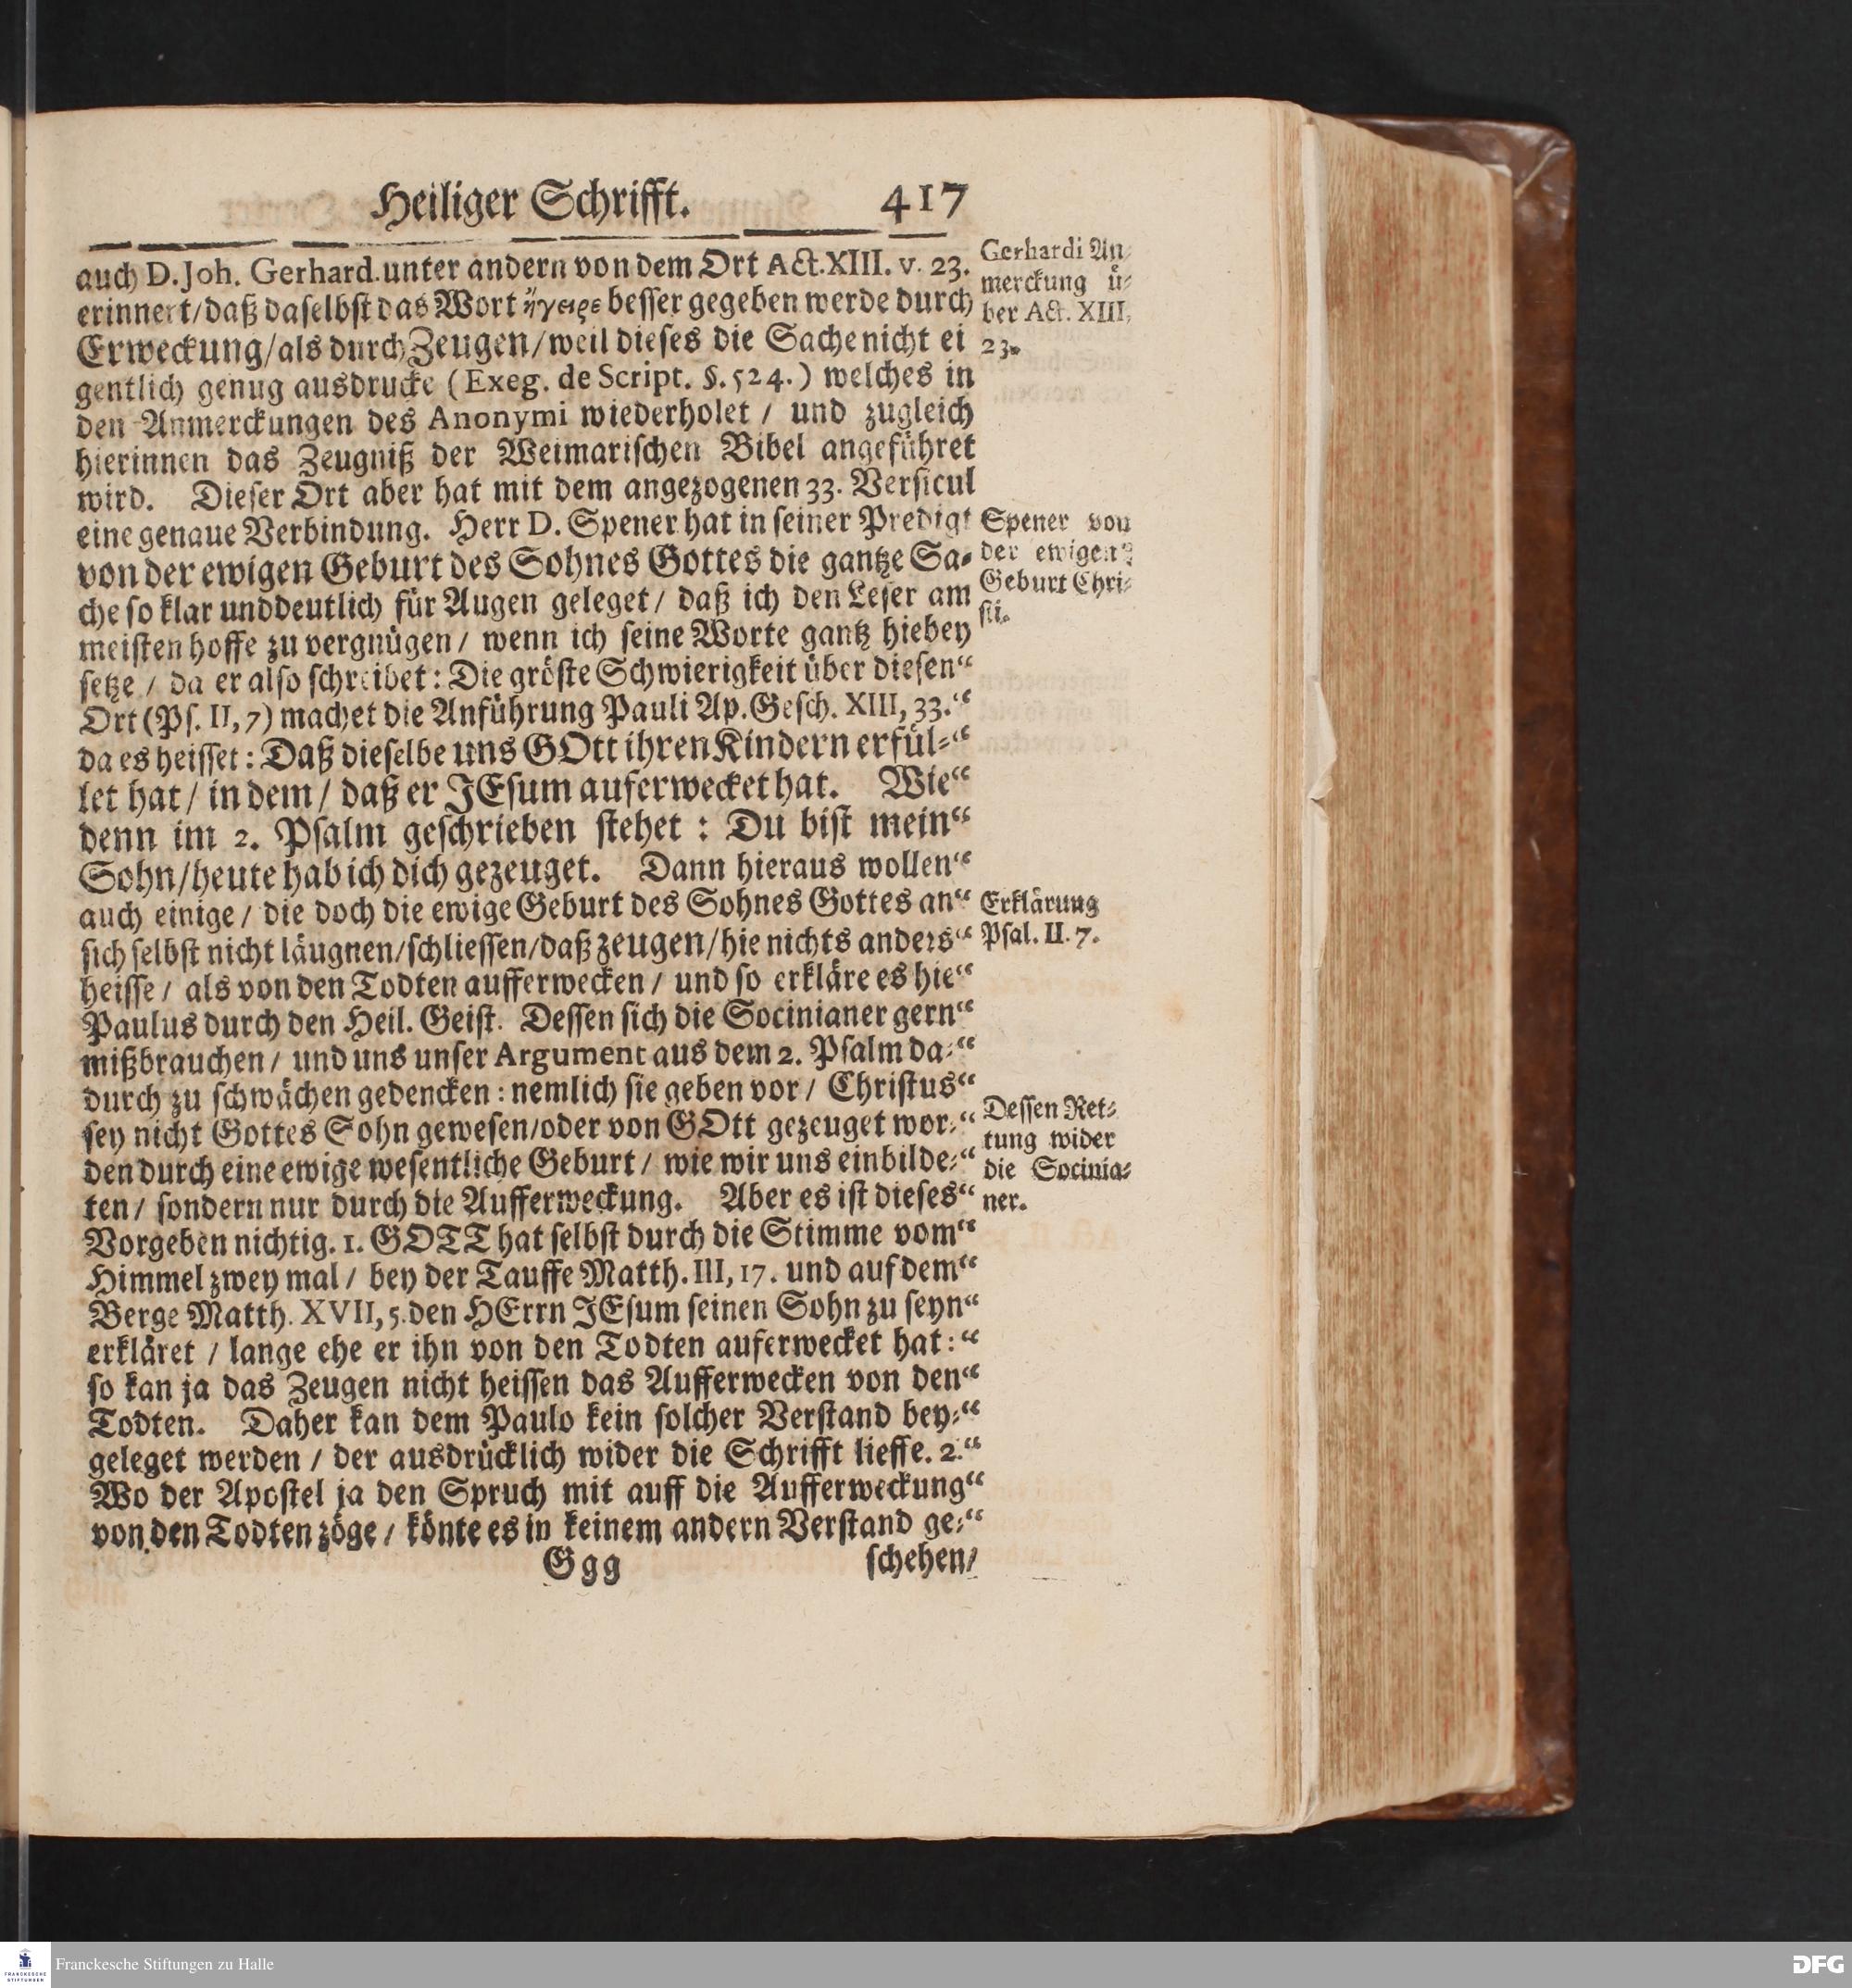 Heiliger Schrifft. 417
auch D. Joh. Gerhard. unter andern von dem Ort Act. XIII. v. 23.
erinnert / daß daselbst das Wort ἤγειρε besser gegeben werde durch
Erweckung / als durch Zeugen / weil dieses die Sache nicht ei
gentlich genug ausdrucke (Exeg. de Script. §. 524.) welches in
den Anmerckungen des Anonymi wiederholet / und zugleich
hierinnen das Zeugniß der Weimarischen Bibel angeführet
wird. Dieser Ort aber hat mit dem angezogenen 33. Versicul
eine genaue Verbindung. Herr D. Spener hat in seiner Predigt
von der ewigen Geburt des Sohnes Gottes die gantze Sa-
che so klar und deutlich für Augen geleget / daß ich den Leser am
meisten hoffe zu vergnügen / wenn ich seine Worte gantz hiebey
setze / da er also schreibet: Die gröste Schwierigkeit über diesen“
Ort (Ps. II, 7) machet die Anführung Pauli Ap. Gesch. XIII, 33.“
da es heisset: Daß dieselbe uns GOtt ihren Kindern erfül-“
let hat / in dem / daß er JEsum auferwecket hat. Wie“
denn im 2. Psalm geschrieben stehet: Du bist mein“
Sohn / heute hab ich dich gezeuget. Dann hieraus wollen“
auch einige / die doch die ewige Geburt des Sohnes Gottes an“
sich selbst nicht läugnen / schliessen / daß zeugen / hie nichts anders“
heisse / als von den Todten aufferwecken / und so erkläre es hie“
Paulus durch den Heil. Geist. Dessen sich die Socinianer gern“
mißbrauchen / und uns unser Argument aus dem 2. Psalm da-“
durch zu schwächen gedencken: nemlich sie geben vor / Christus“
sey nicht Gottes Sohn gewesen / oder von GOtt gezeuget wor-“
den durch eine ewige wesentliche Geburt / wie wir uns einbilde-“
ten / sondern nur durch die Aufferweckung. Aber es ist dieses“
Vorgeben nichtig. 1. GOTT hat selbst durch die Stimme vom“
Himmel zwey mal / bey der Tauffe Matth. III, 17. und auf dem“
Berge Matth. XVII, 5. den HErrn JEsum seinen Sohn zu seyn“
erkläret / lange ehe er ihn von den Todten auferwecket hat:“
so kan ja das Zeugen nicht heissen das Aufferwecken von den“
Todten. Daher kan dem Paulo kein solcher Verstand bey-“
geleget werden / der ausdrücklich wider die Schrifft lieffe. 2.“
Wo der Apostel ja den Spruch mit auff die Aufferweckung“
von den Todten zöge / könte es in keinem andern Verstand ge-“
Ggg schehen /
Gerhardi An
merckung ü-
ber Act. XIII,
23.
Spener von
der ewigen
Geburt Chri-
sti.
Erklärung
Psal. II. 7.
Dessen Ret-
tung wider
die Socinia-
ner.
FRANCKESCHE
STIFTUNGEN
Franckesche Stiftungen zu Halle
DFG